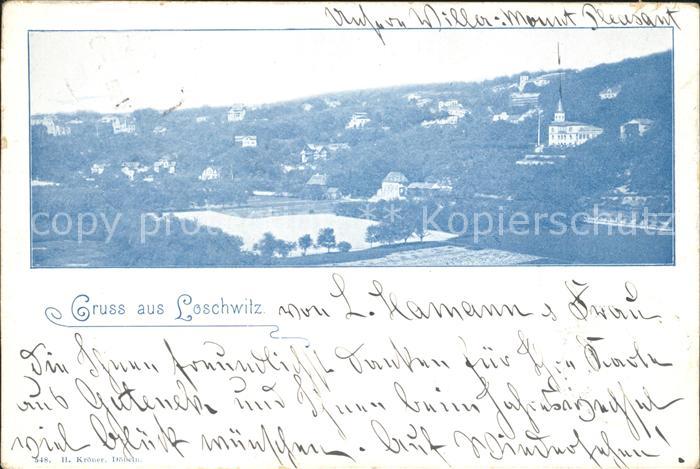 Unsere Willer: Mount Pleasant
copy protection © Kopierschutz
Gruss aus Loschwitz. von L. Hamann & Frau.
Die Ihnen freundlichst danken für Ihre Karte
aus und Ihnen beim Jahreswechsel
viel Glück wünschen. Auf Wiedersehen!
548. H. Kröner, Döbeln.